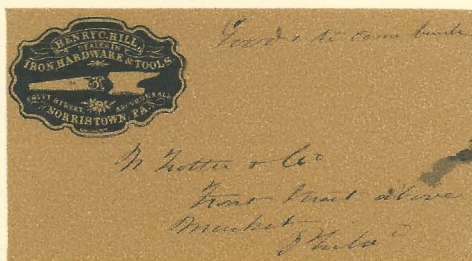 HENRY C. HILL,
DEALER IN
IRON HARDWARE & TOOLS
STREET,
NORRISTOWN, PA.
Goods to come
N Trotter & Co
Front Street above
Market
Phila